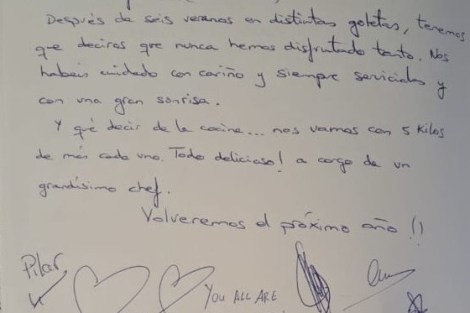 Después de seis veranos en distintas goletas, tenemos
que deciros que nunca hemos disfrutado tanto. Nos
habeis cuidado con cariño y siempre serviciales y
con una gran sonrisa.
Y qué decir de la cocina... nos vamos con 5 kilos
de más cada uno. Todo delicioso! a cargo de un
grandísimo chef.
Volveremos el próximo año !!
Pilar
YOU ALL ARE